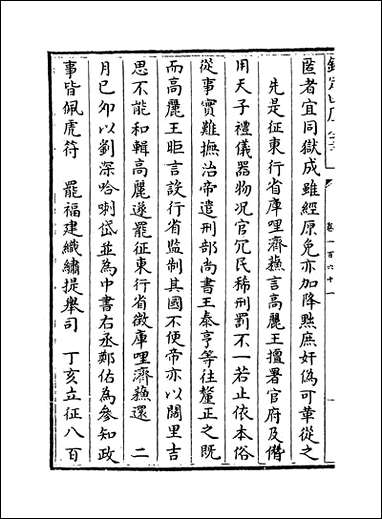 欽定四庫全書
卷一百六十一
匿者宜同獄成雖經原免亦加降黜庶奸偽可革從之
先是征東行省庫哩濟蘓言高麗王擅署官府及僭
用天子禮儀器物况官冗民稀刑罰不一若止依本俗
從事實難撫治帝遣刑部尚書王泰亨等往釐正之既
而高麗王昛言設行省监制其國不便帝亦以闊里吉
思不能和輯高麗遂罷征東行省徵庫哩濟蘓還　二
月已夘以劉深哈喇岱並為中書右丞鄭佑為參知政
事皆佩虎符　罷福建織繡提舉司　丁亥立征八百